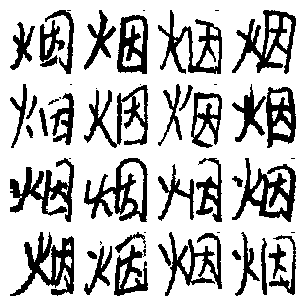 烟烟烟烟
烟烟烟烟
烟烟烟烟
烟烟烟烟